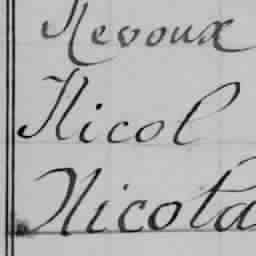 Nevoux
Nicol
Nicola